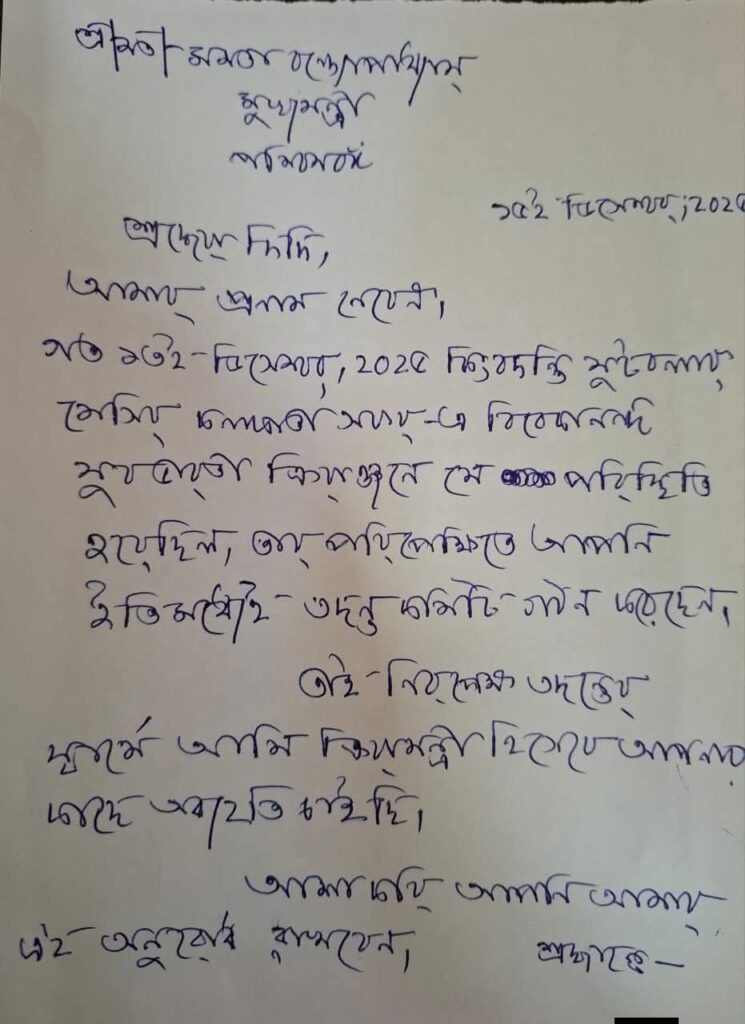 শ্রীমতী মমতা বন্দ্যোপাধ্যায়
মুখ্যমন্ত্রী
পশ্চিমবঙ্গ
১৫ই ডিসেম্বর, 202৫
শ্রদ্ধেয়া দিদি,
আমার প্রনাম নেবেন।
গত ১৩ই-ডিসেম্বর, 202৫ কিংবদন্তি ফুটবলার
মেসির কলকাতা সফর-এ বিবেকানন্দ
যুবভারতী ক্রীড়াঙ্গনে যে পরিস্থিতি
হয়েছিল, তার পরিপ্রেক্ষিতে আপনি
ইতিমধ্যেই তদন্ত কমিটি গঠন করেছেন।
তাই-নিরপেক্ষ তদন্তের
স্বার্থে আমি ক্রীড়ামন্ত্রী হিসেবে আপনার
কাছে অব্যহতি চাইছি।
আশা করি আপনি আমার
এই অনুরোধ রাখবেন।
শ্রদ্ধান্তে—